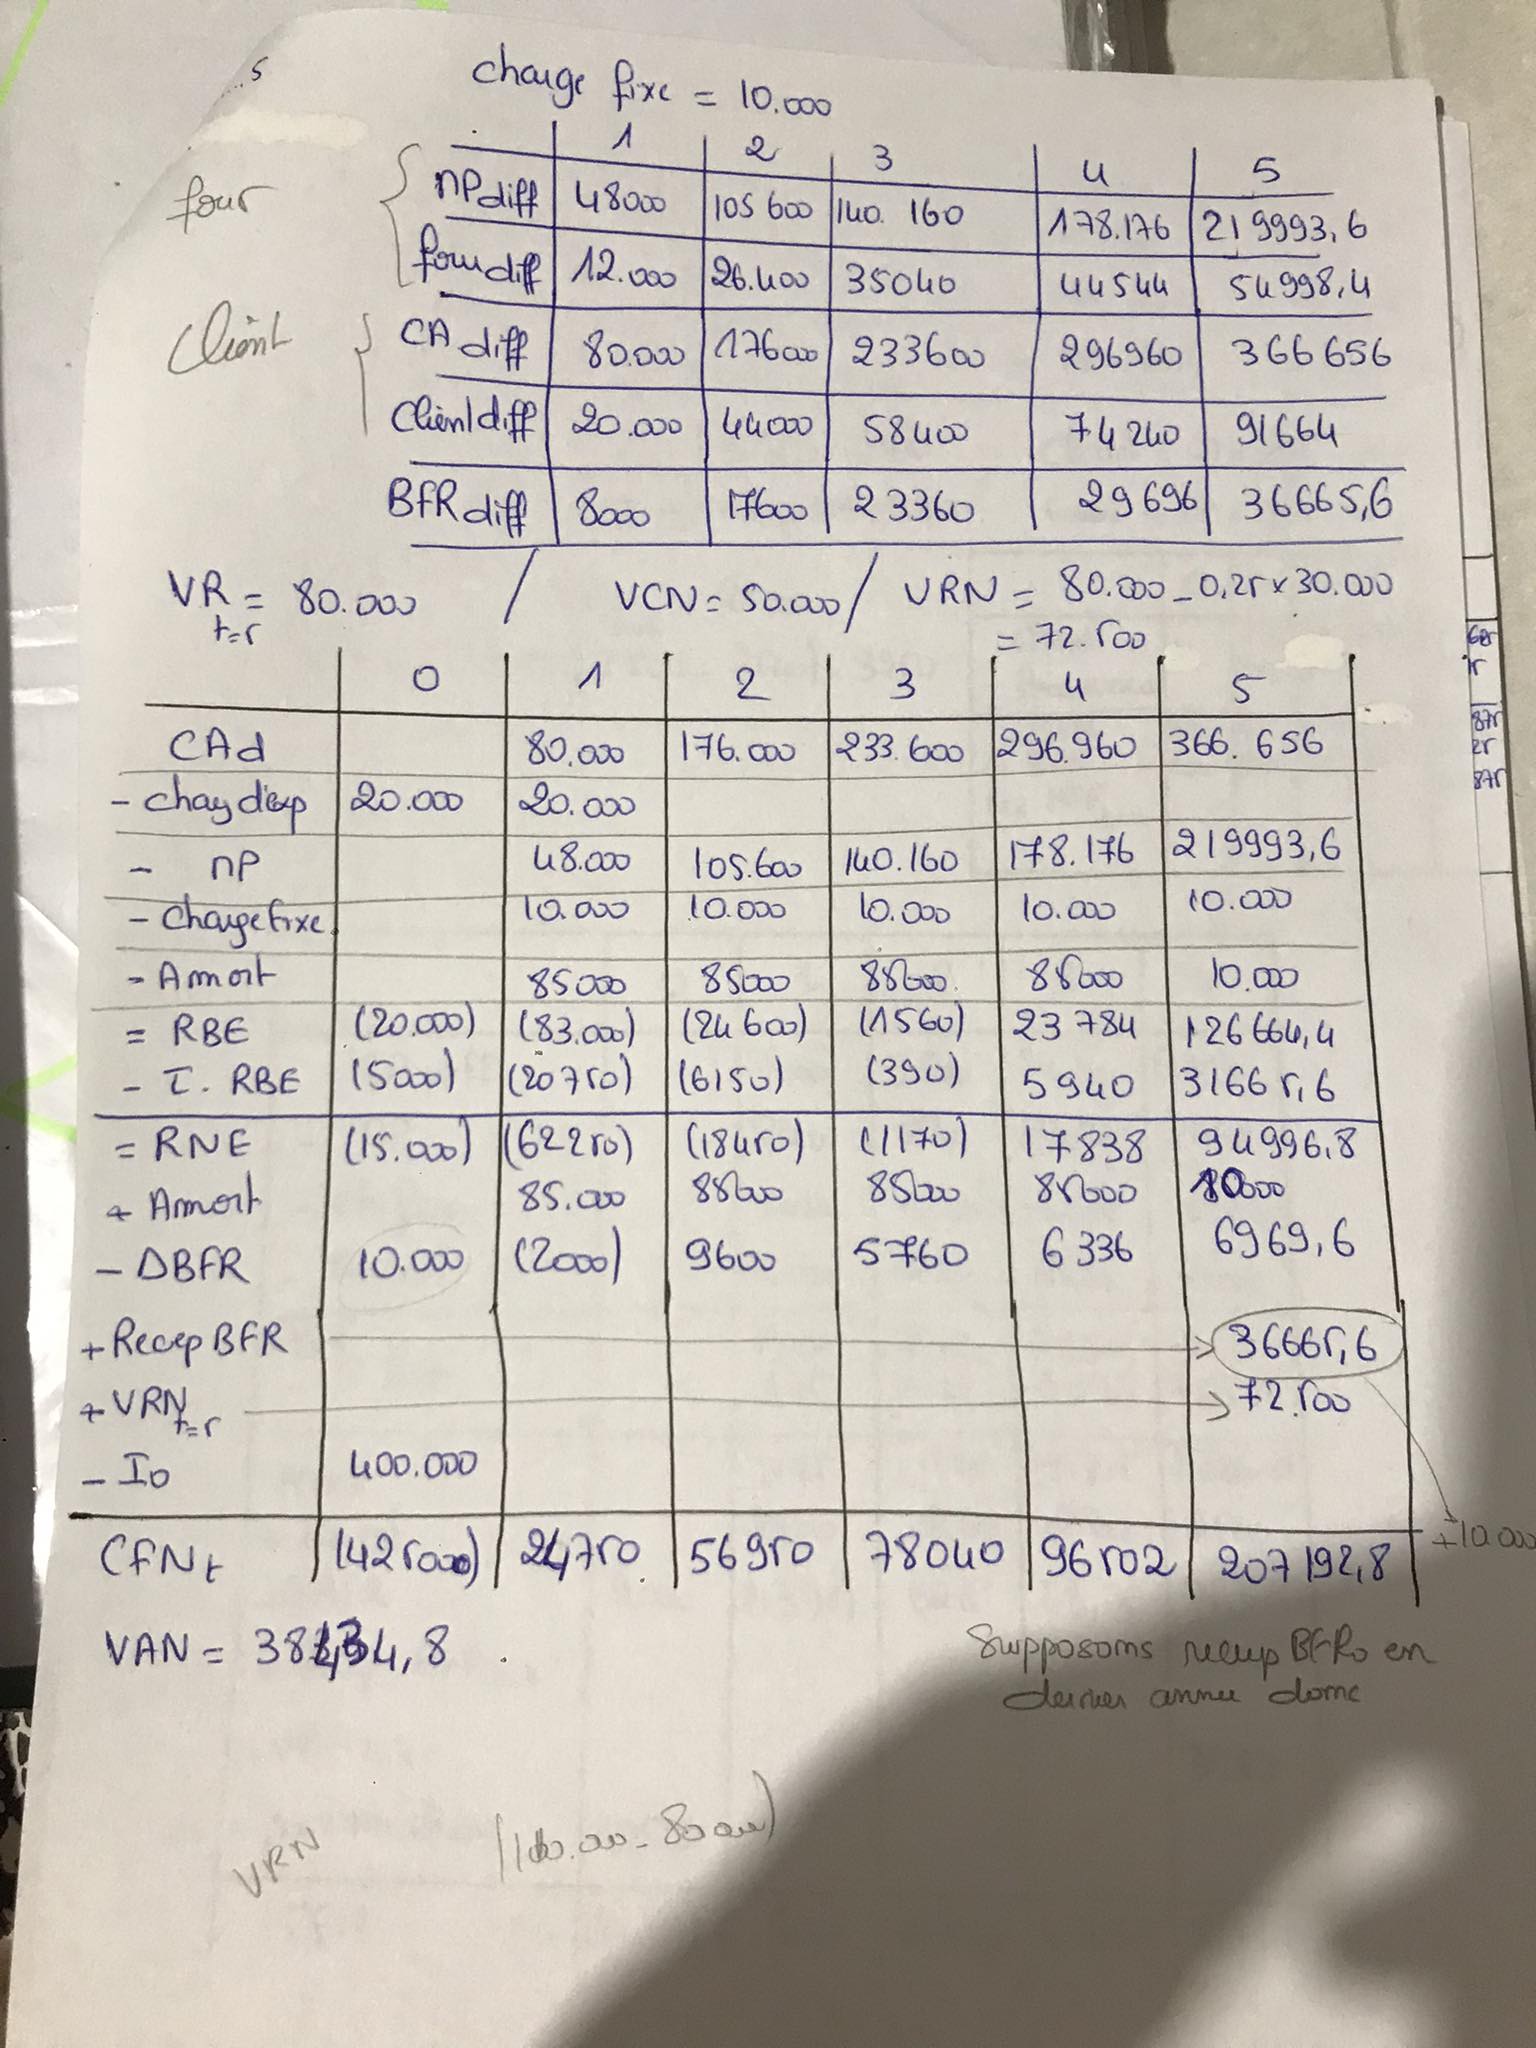 charge fixe = 10.000
1 2 3 4 5
four
MPdiff 48000 105 600 140. 160 178.176 219993,6
fourdiff 12.000 26.400 35040 44544 54998,4
Client
CA diff 80.000 176000 233600 296960 366656
Clientdiff 20.000 44000 58400 74240 91664
BFRdiff 8000 17600 23360 29696 36665,6
VR t=5 = 80.000 / VCN = 50.000 / VRN = 80.000 - 0,25 x 30.000
= 72.500
0 1 2 3 4 5
CAd 80.000 176.000 233.600 296.960 366.656
- charg d'exp 20.000 20.000
- MP 48.000 105.600 140.160 178.176 219993,6
- Charge fixe 10.000 10.000 10.000 10.000 10.000
- Amort 85000 85000 85000 85000 10.000
= RBE (20.000) (83.000) (24600) (1560) 23784 126664,4
- T. RBE (5000) (20750) (6150) (390) 5940 31665,6
= RNE (15.000) (62250) (18450) (1170) 17838 94996,8
+ Amort 85.000 85000 85000 85000 10000
- ΔBFR 10.000 (2000) 9600 5760 6336 6969,6
+ Recup BFR 36665,6
+ VRN t=5 72.500
- I0 400.000
CFNt (425000) 24750 56950 78040 96502 207192,8
+10.000
VAN = , 8
Supposons recup BFR0 en
dernier annee donc
VRN